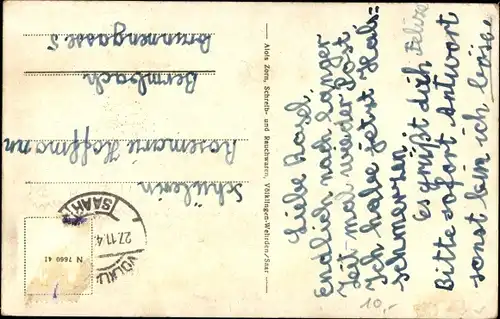 Liebe Rosel.
Endlich nach langer
Zeit mal wieder Post
Ich habe jetzt Hals=
schmerzen.
Es grüßt dich
Bitte sofort Antwort
sonst bin ich böse
Alois Zorn, Schreib- und Rauchwaren, Völklingen-Wehrden/Saar
Schülerin
Rosemarie Hoffmann
Bermbach
Brunnengasse 5
VÖLKL
27.11.4
SAAR
N 7660 41
10,-